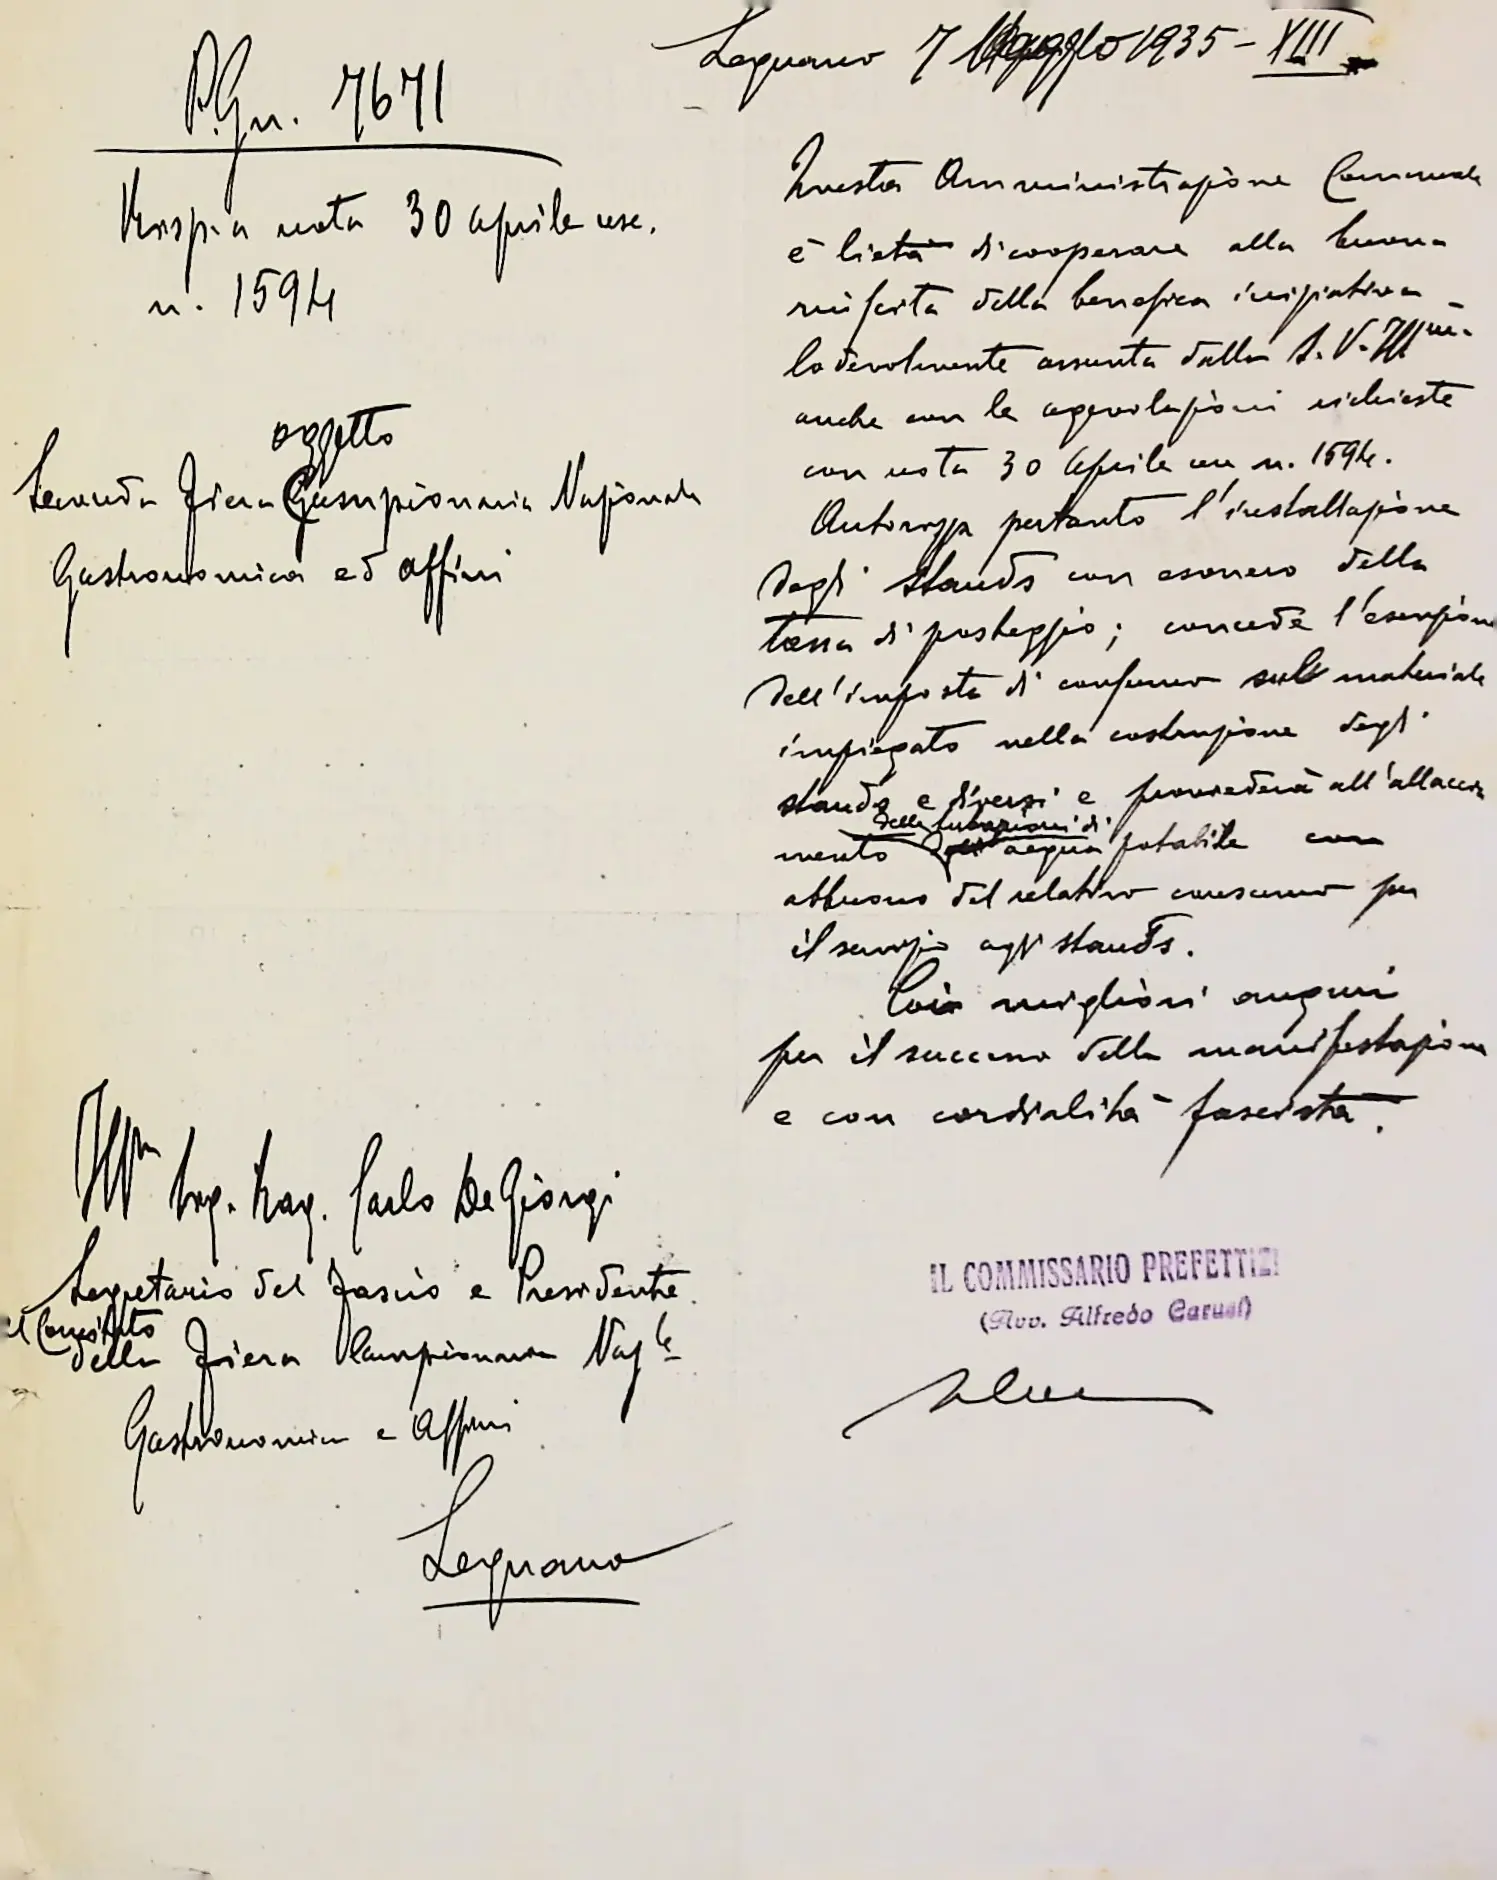 Legnano 7 Maggio 1935 - XIII
P. Gn. 7671
Risp. a nota 30 aprile usc.
n. 1594
oggetto
Seconda Fiera Campionaria Nazionale
Gastronomica ed affini
Questa Amministrazione Comunale
è lieta di cooperare alla buona
riuscita della benefica iniziativa
lodevolmente assunta dalla S.V. Ill.ma
anche con le agevolazioni richieste
con nota 30 Aprile n. 1594.
Autorizza pertanto l'installazione
degli stands con esonero della
tassa di posteggio; concede l'esenzione
dell'imposta di consumo sul materiale
impiegato nella costruzione degli
stands e diversi e provvederà all'allaccia
mento delle tubazioni di acqua potabile con
abbuono del relativo consumo per
il servizio agli stands.
Coi migliori auguri
per il successo della manifestazione
e con cordialità fascista.
Ill.mo Ing. Rag. Carlo De Giorgi
Segretario del Fascio e Presidente
del Comitato
della Fiera Campionaria Naz.le
Gastronomica e Affini
Legnano
IL COMMISSARIO PREFETTIZI
(Avv. Alfredo Carusi)